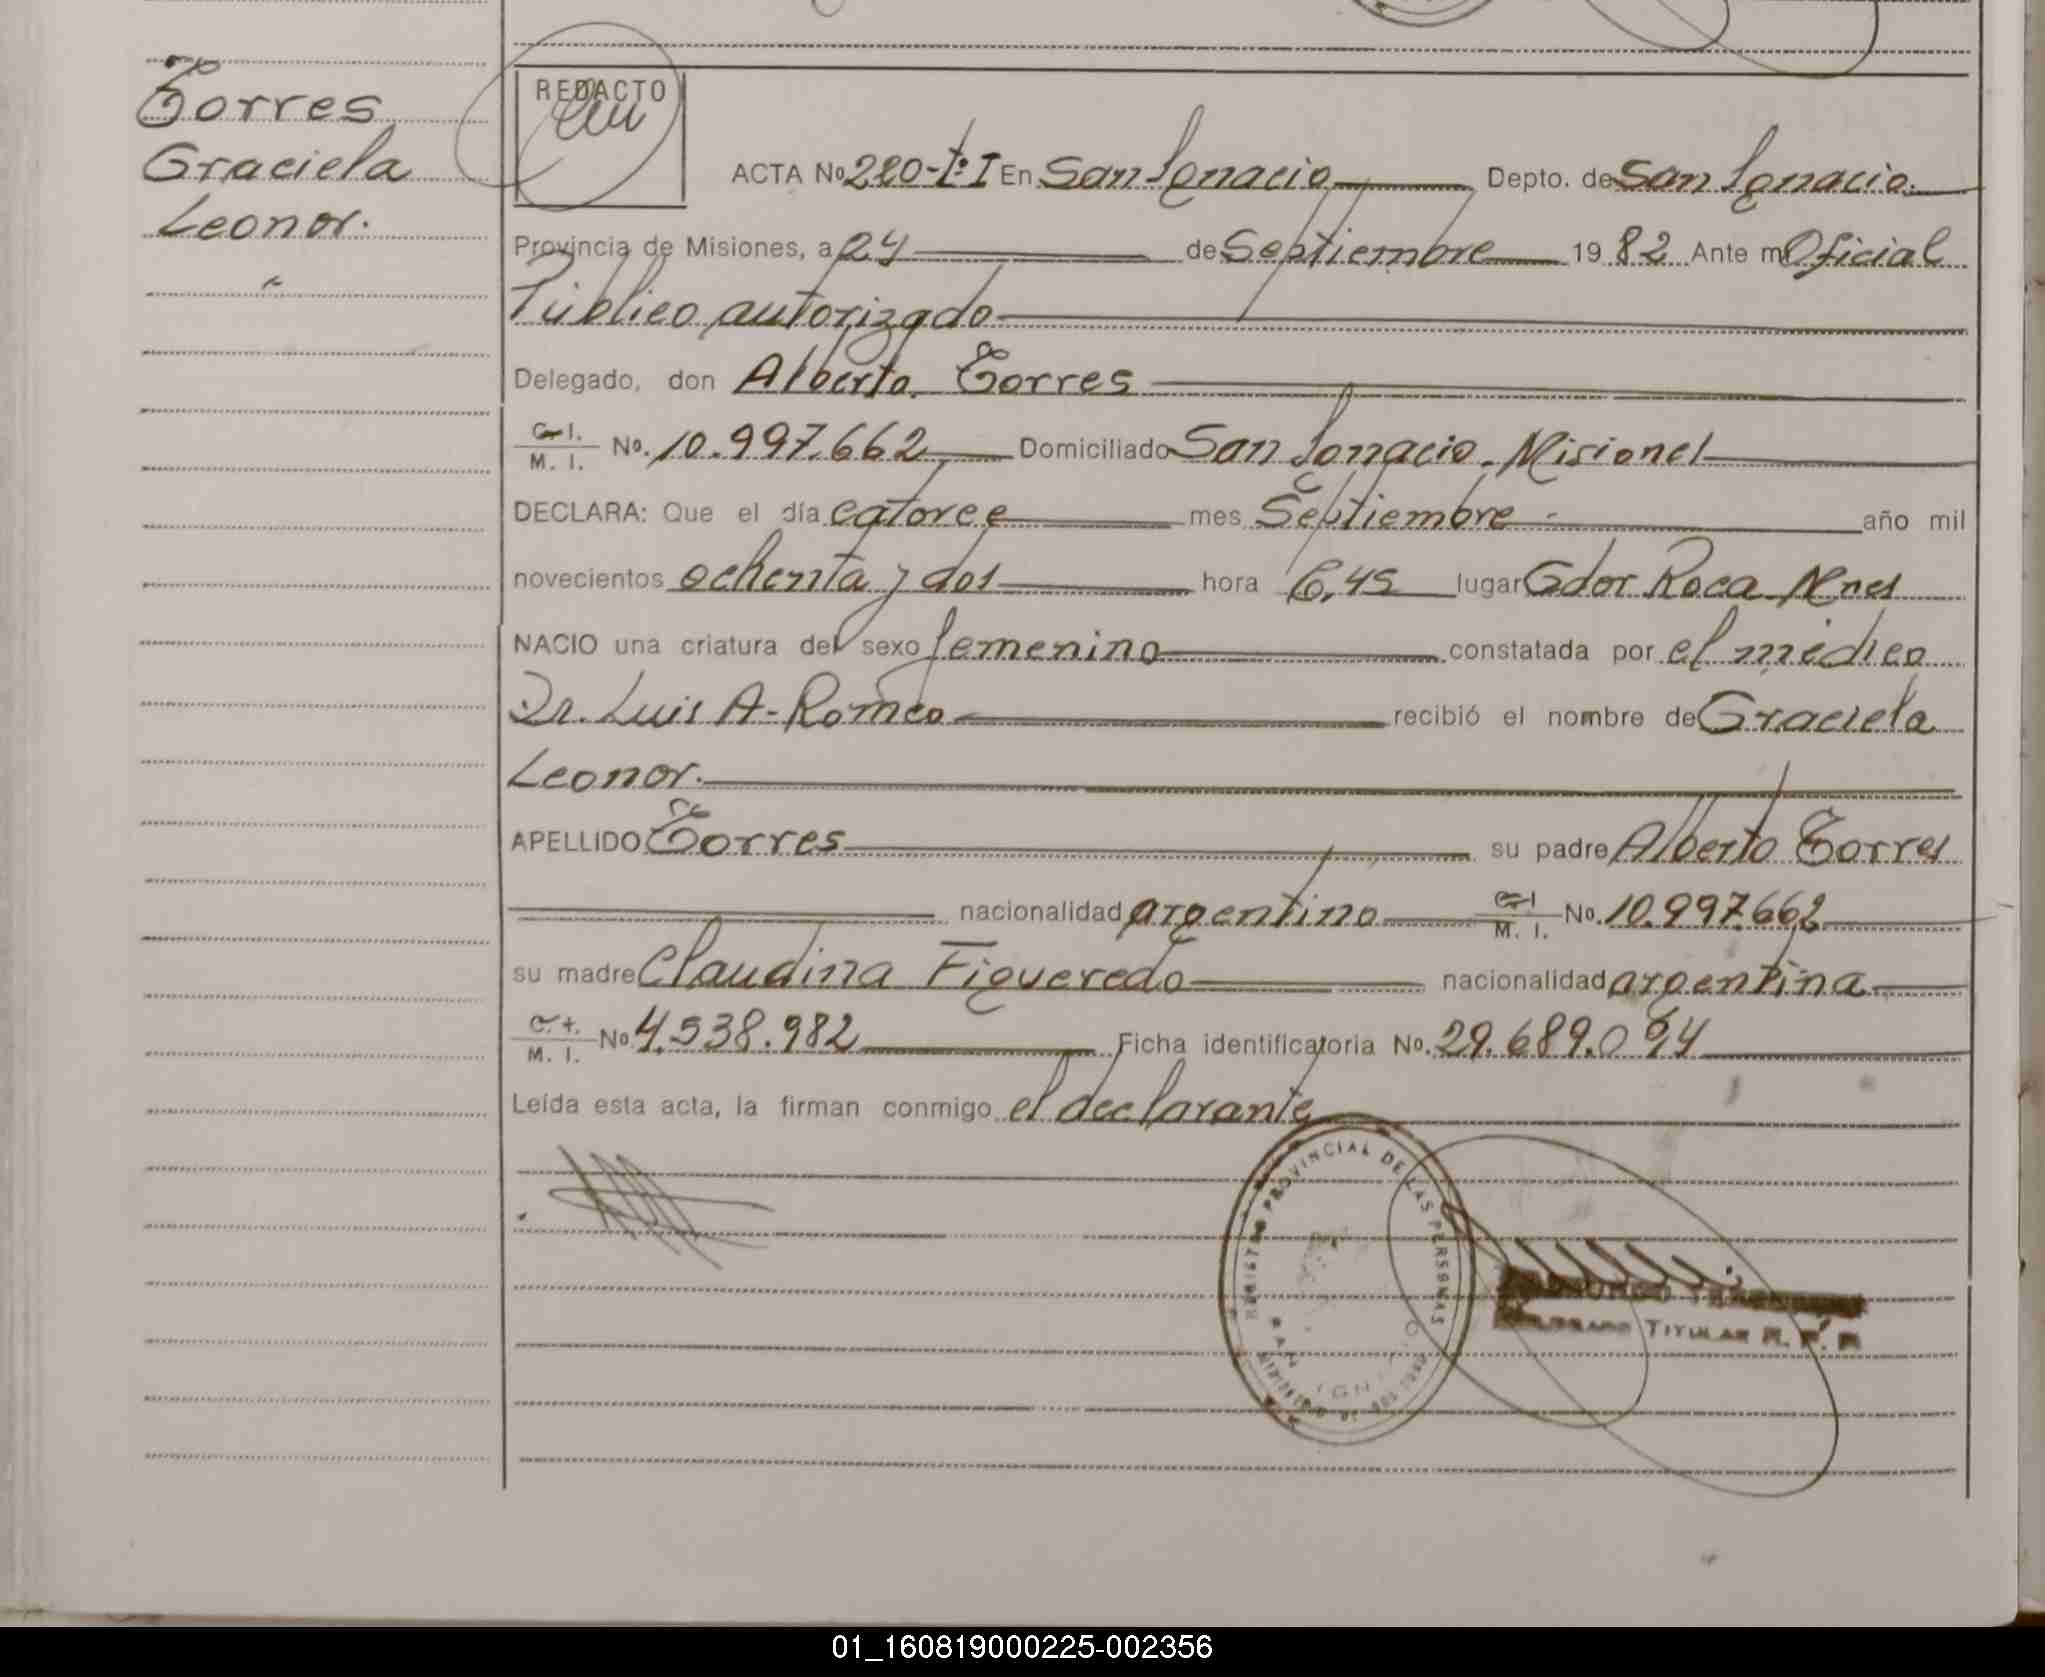 Torres
Graciela
Leonor.
REDACTO
ACTA No 220-tº I En San Ignacio Depto. de San Ignacio.
Provincia de Misiones, a 24 de Septiembre 1982 Ante mi Oficial
Público autorizado
Delegado, don Alberto Torres
C. I.
M. I. No. 10.997.662 Domiciliado San Ignacio. Misiones
DECLARA: Que el día catorce mes Septiembre año mil
novecientos ochenta y dos hora 6,45 lugar Gdor Roca Mnes
NACIO una criatura del sexo femenino constatada por el médico
Dr. Luis A. Romeo recibió el nombre de Graciela
Leonor.
APELLIDO Torres su padre Alberto Torres
nacionalidad argentino C. I.
M. I. No. 10.997.662
su madre Claudina Figueredo nacionalidad argentina
C. I.
M. I. No 4.538.982 Ficha identificatoria No. 29.689.094
Leída esta acta, la firman conmigo el declarante
PROVINCIAL DE LAS PERSONAS
SAN IGNACIO
TITULAR R. P. P.
01_160819000225-002356